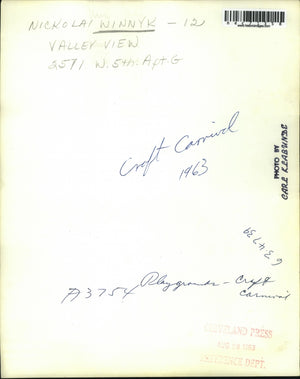 NICKOLAI WINNYK - 12
VALLEY VIEW
2571 W. 5th. Apt. G
Croft Carnival
1963
PHOTO BY
CARL
A3754
Playgrounds - Craft
Carnival
CLEVELAND PRESS
1963
REFERENCE DEPT.